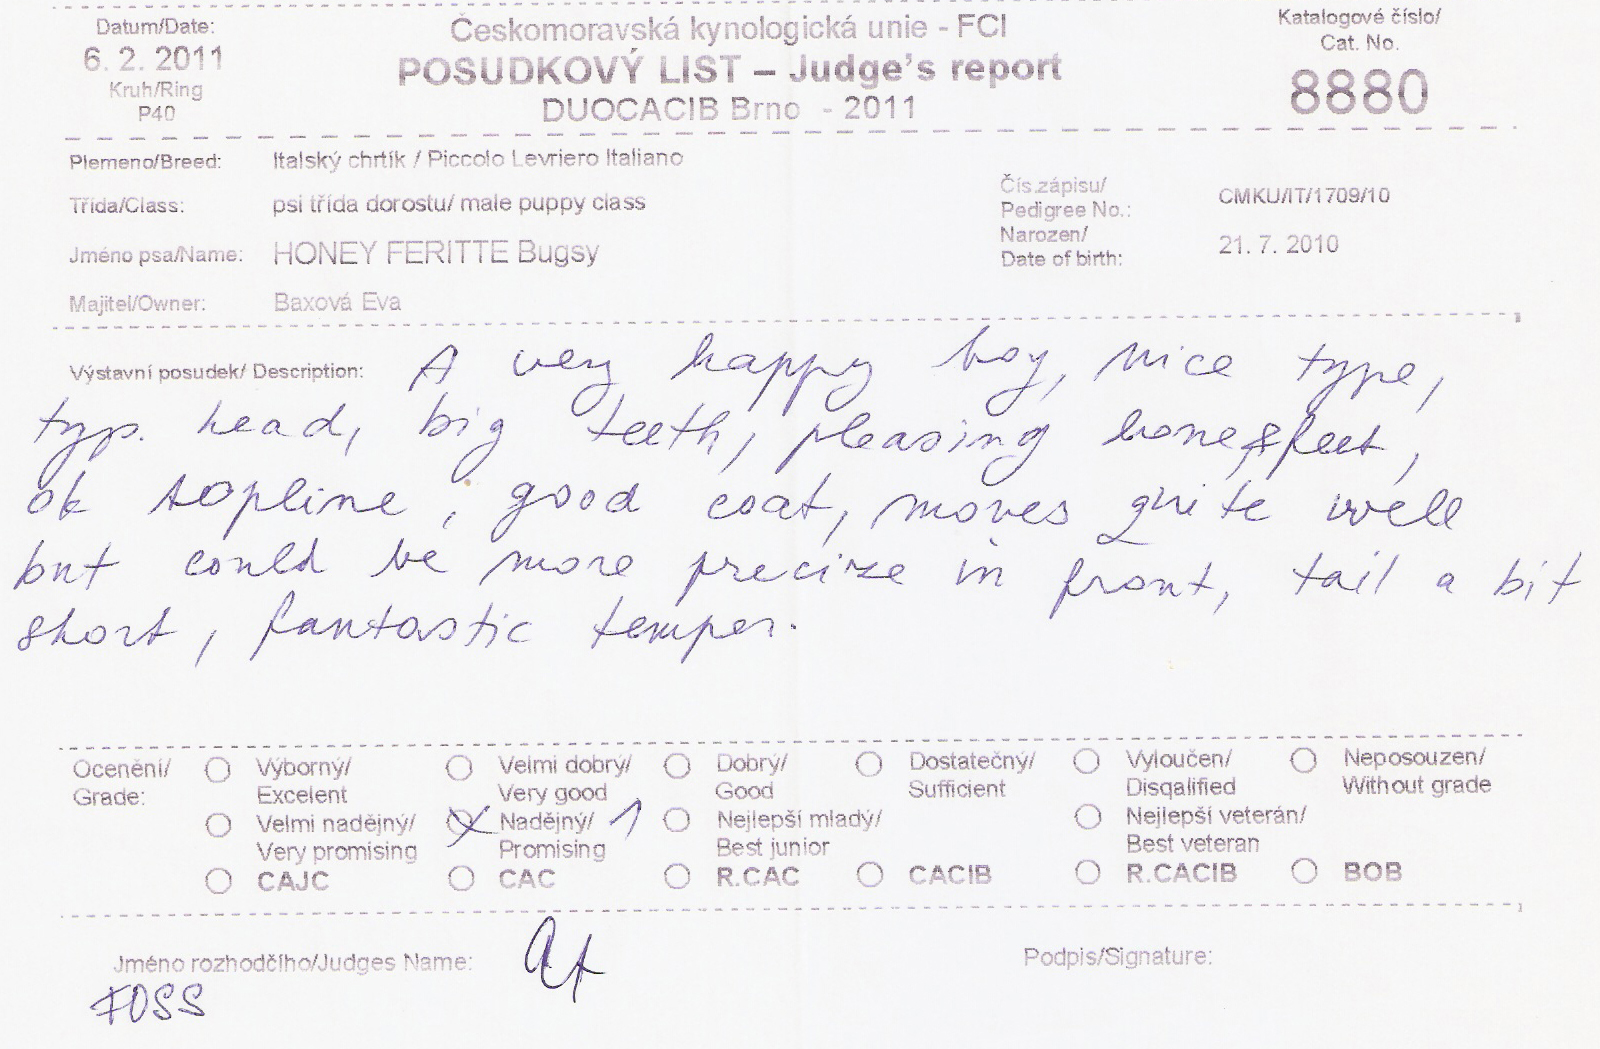 Datum/Date:
6. 2. 2011
Kruh/Ring
P40
Českomoravská kynologická unie - FCI
POSUDKOVÝ LIST – Judge's report
DUOCACIB Brno - 2011
Katalogové číslo/
Cat. No.
8880
Plemeno/Breed: Italský chrtík / Piccolo Levriero Italiano
Třída/Class: psi třída dorostu/ male puppy class
Jméno psa/Name: HONEY FERITTE Bugsy
Majitel/Owner: Baxová Eva
Čís.zápisu/
Pedigree No.: CMKU/IT/1709/10
Narozen/
Date of birth: 21. 7. 2010
Výstavní posudek/ Description: A very happy boy, nice type,
typ. head, big teeth, pleasing bone & feet,
ok topline, good coat, moves quite well
but could be more precize in front, tail a bit
short, fantastic temper.
Ocenění/
Grade:
Výborný/
Excelent
Velmi dobrý/
Very good
Dobrý/
Good
Dostatečný/
Sufficient
Vyloučen/
Disqalified
Neposouzen/
Without grade
Velmi nadějný/
Very promising
X Nadějný/ 1
Promising
Nejlepší mladý/
Best junior
Nejlepší veterán/
Best veteran
CAJC CAC R.CAC CACIB R.CACIB BOB
Jméno rozhodčího/Judges Name:
FOSS
Podpis/Signature: